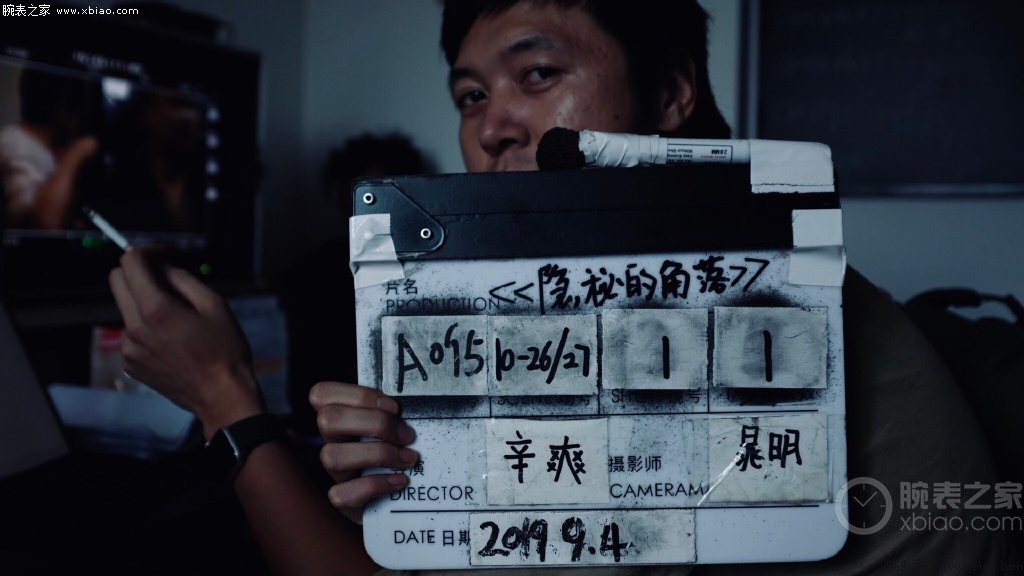 腕表之家 www.xbiao.com
片名
PRODUCTION <<隐秘的角落>>
A095 10-26/27 1 1
导演 辛爽 摄影师 晁明
DIRECTOR CAMERAM
DATE 日期 2019 9.4
腕表之家
xbiao.com